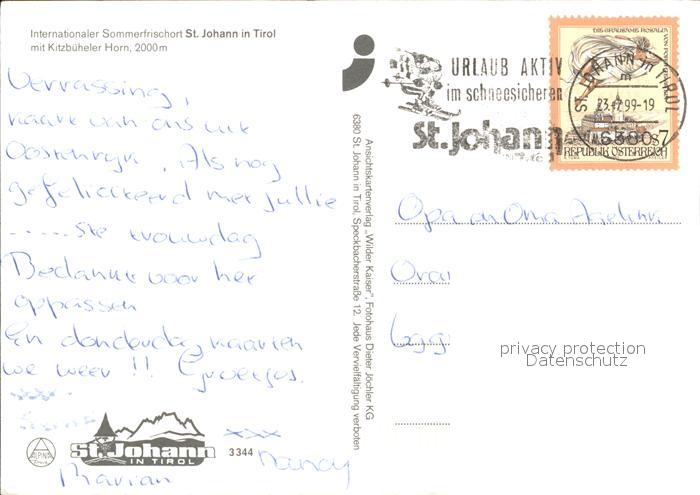 Internationaler Sommerfrischort St. Johann in Tirol
mit Kitzbüheler Horn, 2000m
Verrassing,
kaart van ons uit
Oostenryk. Als nog
gefeliciteerd met jullie
......ste trouwdag
Bedankt voor het
oppassen
En donderdag kaarten
we weer !! Groetjes.
xxx
St. Johann
IN TIROL
3344
Marian
Nancy
Ansichtskartenverlag „Wilder Kaiser", Fotohaus Dieter Jöchler KG
6380 St. Johann in Tirol, Speckbacherstraße 12. Jede Vervielfältigung verboten
URLAUB AKTIV
im schneesicheren
St. Johann
IN TIROL
ST. JOHANN in TIROL
23.-7.99-19
6380
DIE GRAUSAME ROSALIA
VON FORCHTENSTEIN
S 7
REPUBLIK ÖSTERREICH
Opa en Oma
privacy protection
Datenschutz